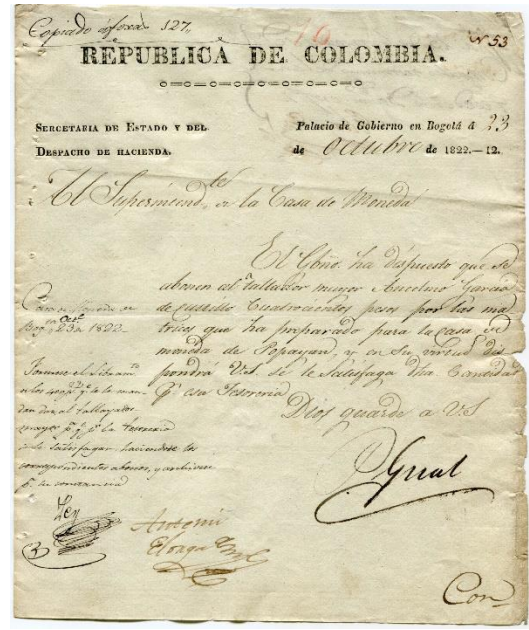 Copiado á foxa 127,,
10
Nº 53
REPUBLICA DE COLOMBIA.
SERCETARIA DE ESTADO Y DEL
DESPACHO DE HACIENDA.
Palacio de Gobierno en Bogotá á 23
de Octubre de 1822.—12.
Al Superintend.te de la Casa de Moneda
El Gbño. ha dispuesto que se
abonen al tallador mayor Anselmo Garcia
de Cuatrocientos pesos por las ma
trices que ha preparado para la casa de
moneda de Popayan, y en su virtud dis
pondrá V.S. se le satisfaga dha Cantidad
p.r esa Tesoreria
Dios guarde a V.S
Gual
Casa de Moneda en
Bog. 23 de 1822
Tomese el
a los 400 p.s q.e se le man
dan dar al tallador
mayor p.a q.e p.r la Tesoreria
se le satisfagan haciendose los
correspondientes abonos, y archivese
p.a su constancia
Ley
Antonio
Con